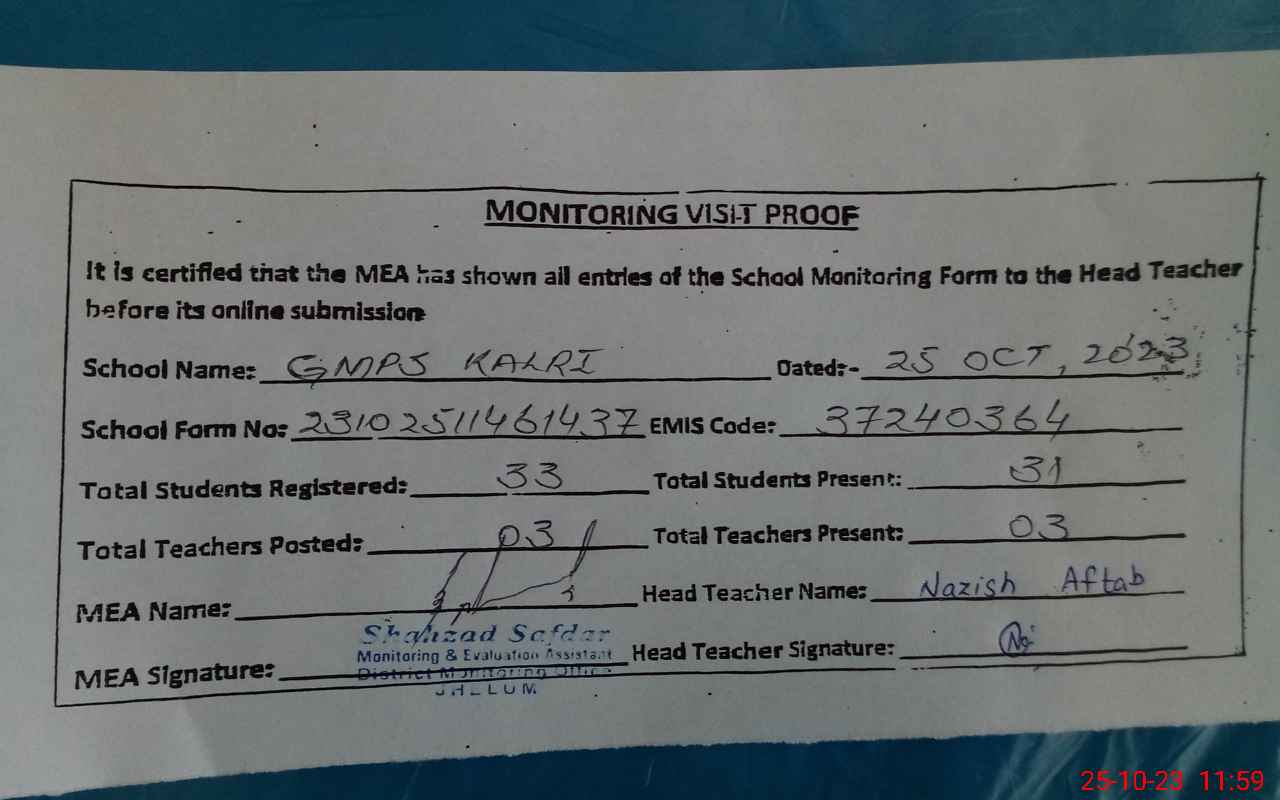 MONITORING VISIT PROOF
It is certified that the MEA has shown all entries of the School Monitoring Form to the Head Teacher
before its online submission
School Name: GMPS KALRI Dated:- 25 OCT, 2023
School Form No: 23102511461437 EMIS Code: 37240364
Total Students Registered: 33 Total Students Present: 31
Total Teachers Posted: 03 Total Teachers Present: 03
MEA Name: Head Teacher Name: Nazish Aftab
Shahzad Safdar
Monitoring & Evaluation Assistant
MEA Signature: Head Teacher Signature:
District Monitoring Office
JHELUM
25-10-23 11:59